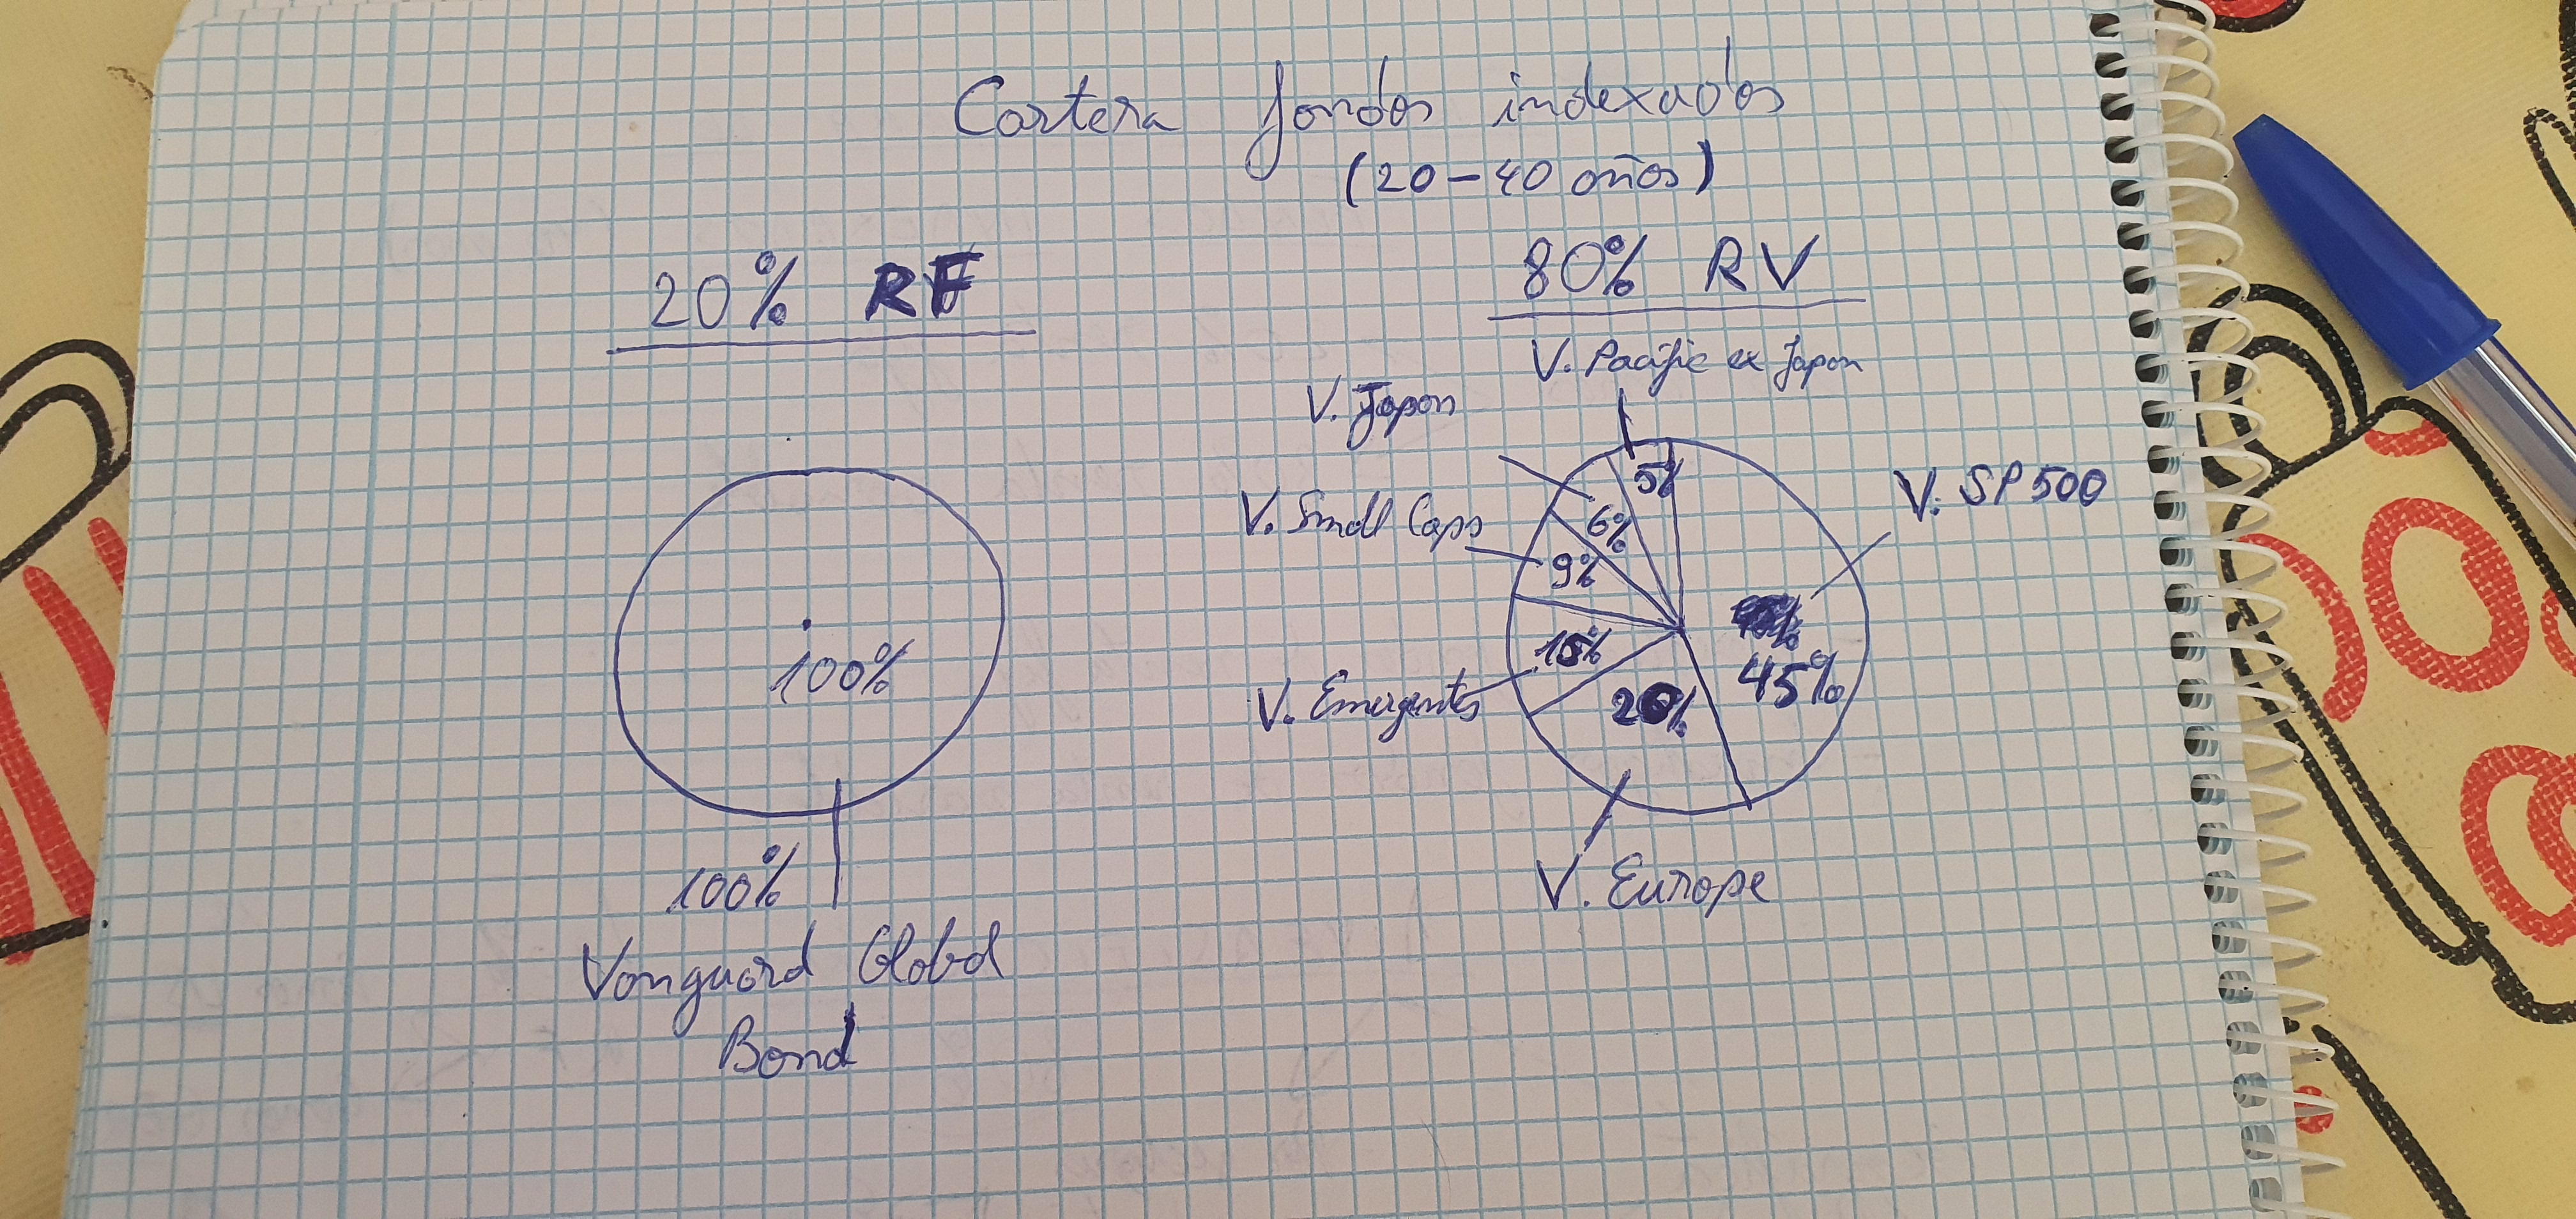 Cartera fondos indexados
(20-40 años)
20% RF
80% RV
V. Pacific ex Japon
V. Japon
5%
V. SP 500
V. Small Caps
6%
9%
15%
45%
V. Emergentes
20%
100%
V. Europe
100%
Vanguard Global
Bond